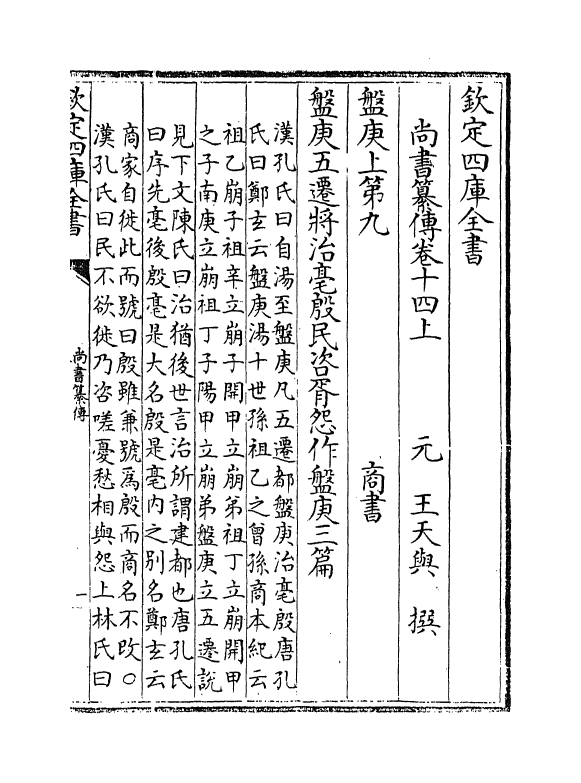 欽定四庫全書
尚書纂傳卷十四上
元　王天與　撰
盤庚上第九　商書
盤庚五遷將治亳殷民咨胥怨作盤庚三篇
漢孔氏曰自湯至盤庚凡五遷都盤庚治亳殷唐孔
氏曰鄭玄云盤庚湯十世孫祖乙之曾孫商本紀云
祖乙崩子祖辛立崩子開甲立崩弟祖丁立崩開甲
之子南庚立崩祖丁子陽甲立崩弟盤庚立五遷說
見下文陳氏曰治猶後世言治所謂建都也唐孔氏
曰序先亳後殷亳是大名殷是亳内之别名鄭玄云
商家自徙此而號曰殷雖兼號爲殷而商名不改○
漢孔氏曰民不欲徙乃咨嗟憂愁相與怨上林氏曰
欽定四庫全書
尚書纂傳
一